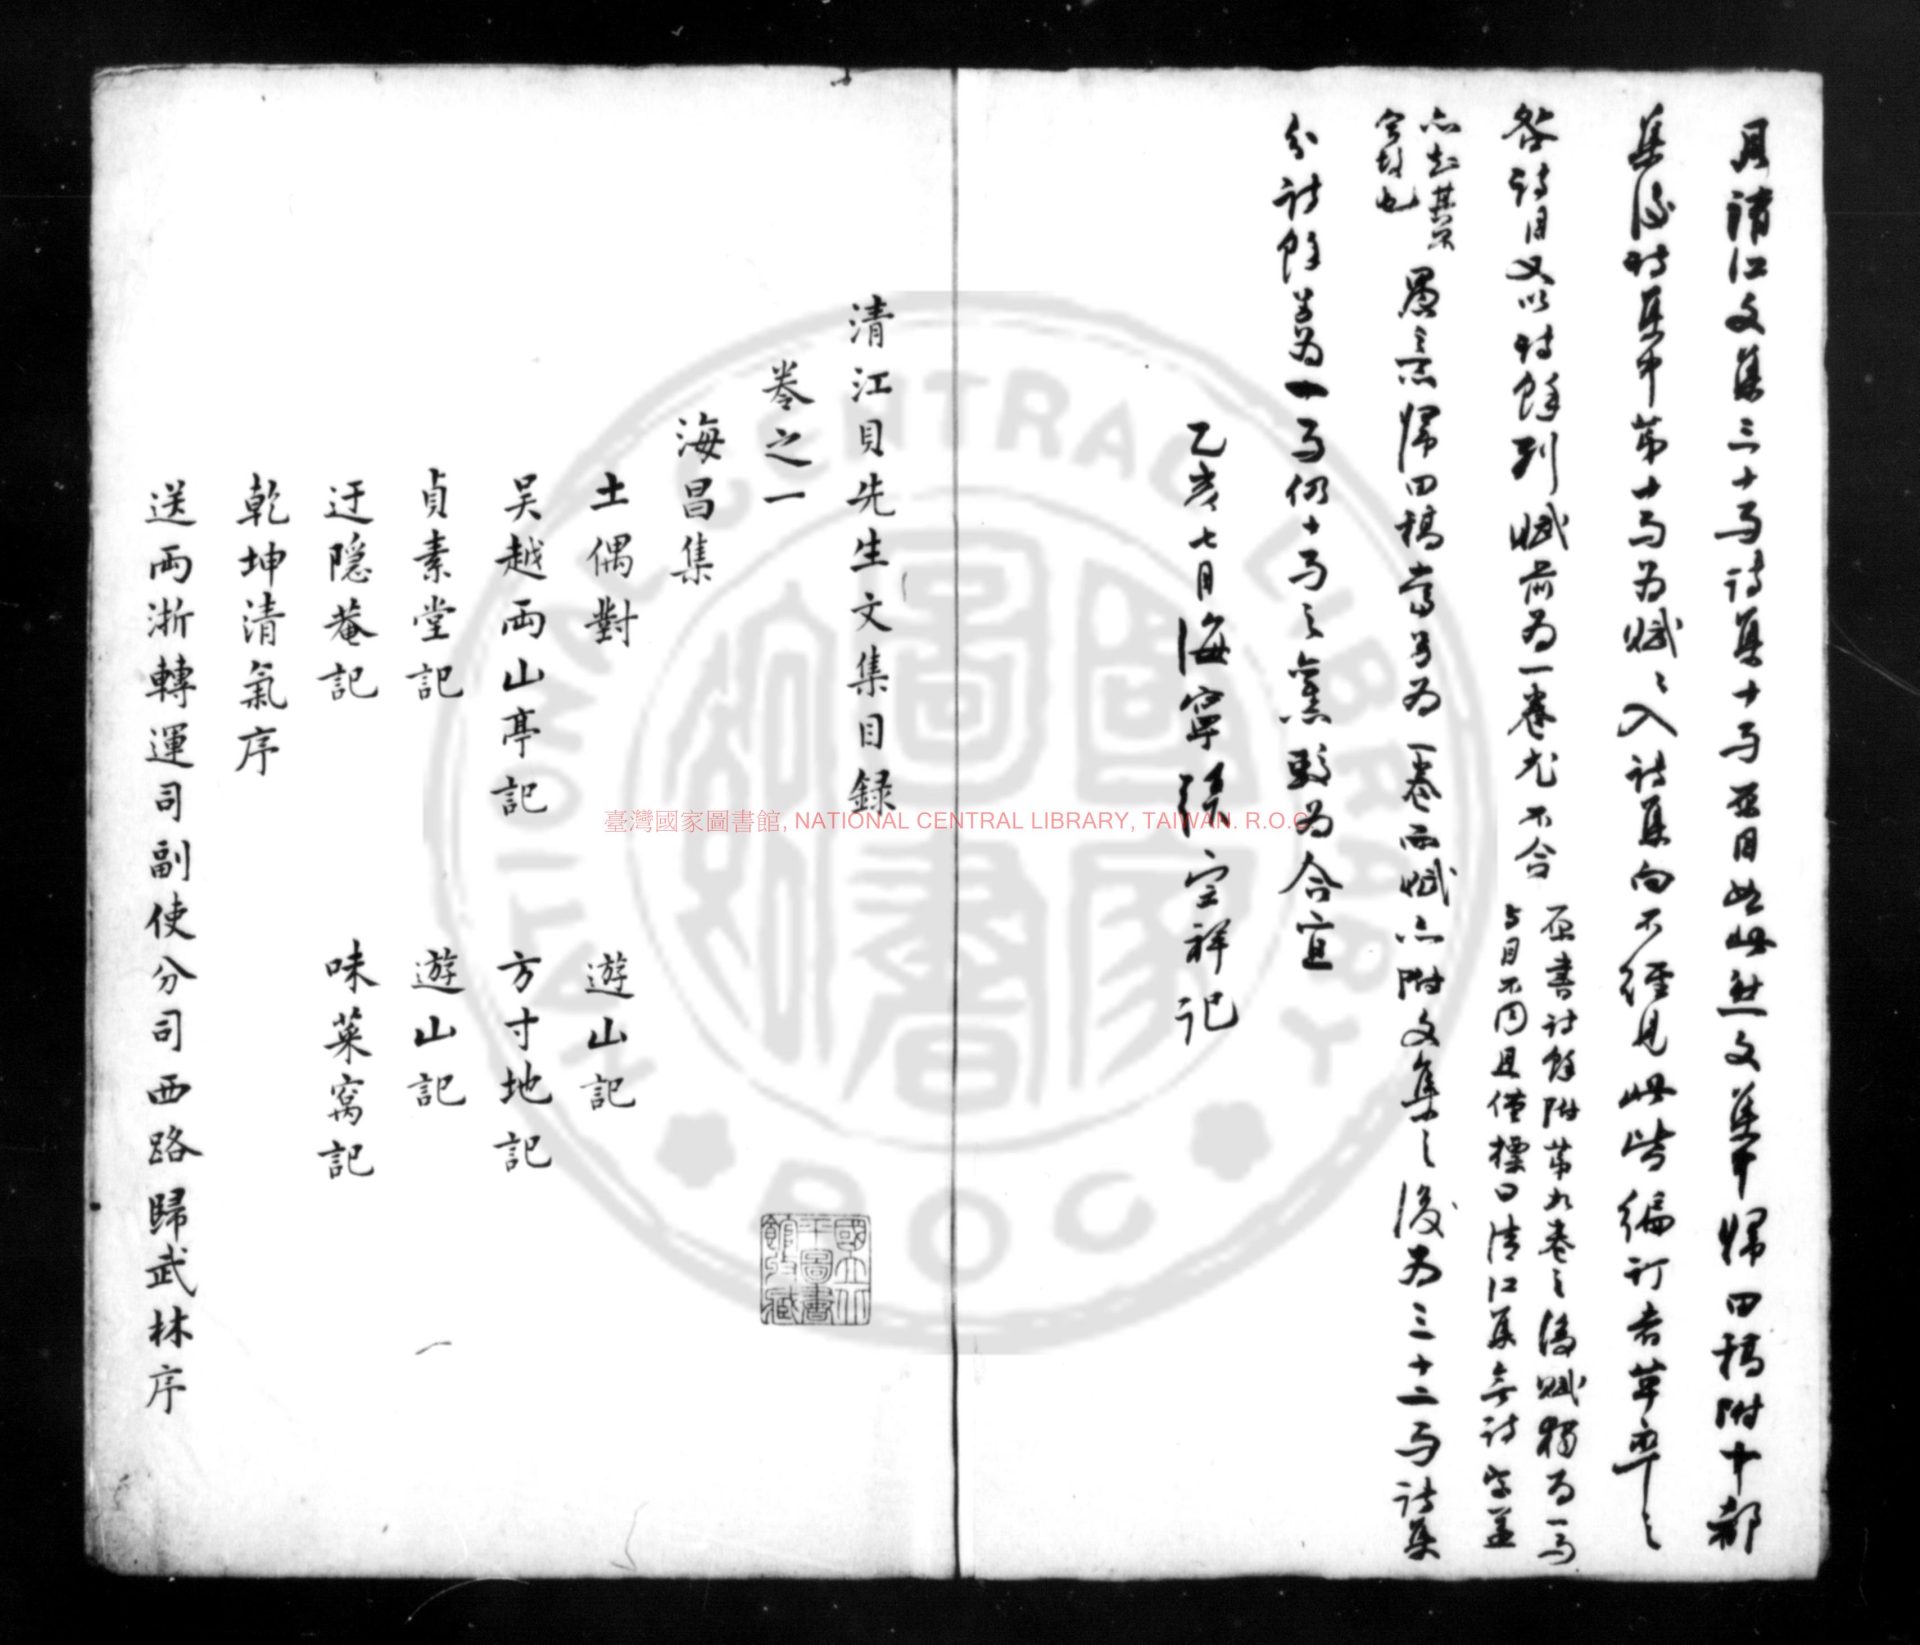 貝清江文集三十弓詩集十弓並目如此然文集中歸田稿附十都
集後詩集中第十弓為賦〻入詩集向不經見此皆編訂者草率之
咎詩目又以詩餘列賦前為一卷尤不合
原書詩餘附第九卷之後賦獨為一弓
與目不同且僅標曰清江集無詩字並
亦起其
字故也
愚意歸田稿當另為一卷而賦亦附文集之後為三十二弓詩集
分詩餘為一弓仍十弓之舊較為合宜
乙亥七月海寧張宗祥記
清江貝先生文集目錄
卷之一
海昌集
土偶對 遊山記
吴越兩山亭記 方寸地記
貞素堂記 遊山記
迂隱菴記 味菜窩記
乾坤清氣序
送兩浙轉運司副使分司西路歸武林序
國立北
平圖書
館收藏
臺灣國家圖書館, NATIONAL CENTRAL LIBRARY, TAIWAN. R.O.C.
NATIONAL CENTRAL LIBRARY
ROC
國家圖書館